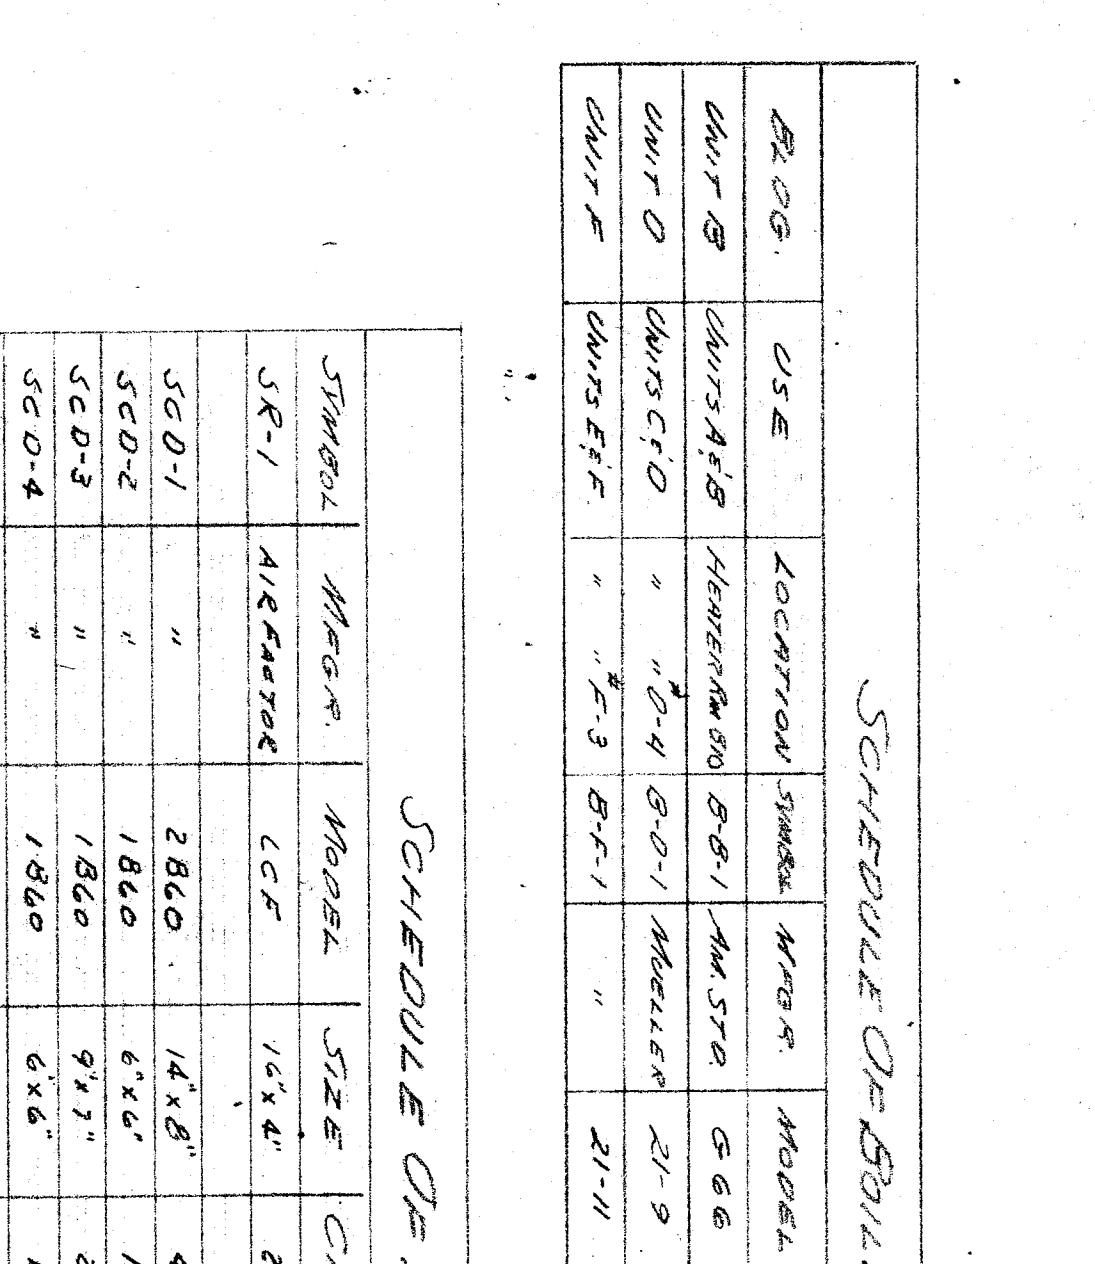 SCHEDULE OF BOIL
BLDG. USE LOCATION SYMBOL MFGR. MODEL
UNIT B UNITS A & B HEATER RM B10 B-B-1 AM. STD. G66
UNIT D UNITS C & D " " #D-4 B-D-1 MUELLER 21-9
UNIT F UNITS E & F. " " #F-3 B-F-1 " 21-11
SCHEDULE OF
SYMBOL MFGR. MODEL SIZE
SR-1 AIRFACTOR LCF 16"x4" 2
SCD-1 " 2860 14"x8" 4
SCD-2 " 1860 6"x6" 1
SCD-3 " 1860 9"x7" 2
SCD-4 " 1860 6"x6"